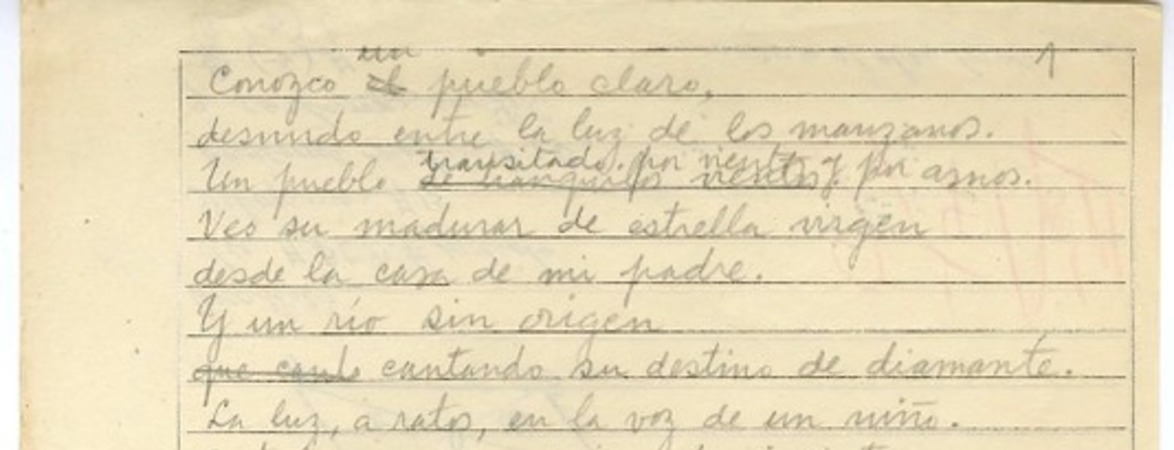 1
Conozco un pueblo claro,
desnudo entre la luz de los manzanos.
Un pueblo transitado por vientos y por asnos.
Veo su madurar de estrella virgen
desde la casa de mi padre.
Y un río sin origen
cantando su destino de diamante.
La luz, a ratos, en la voz de un niño.